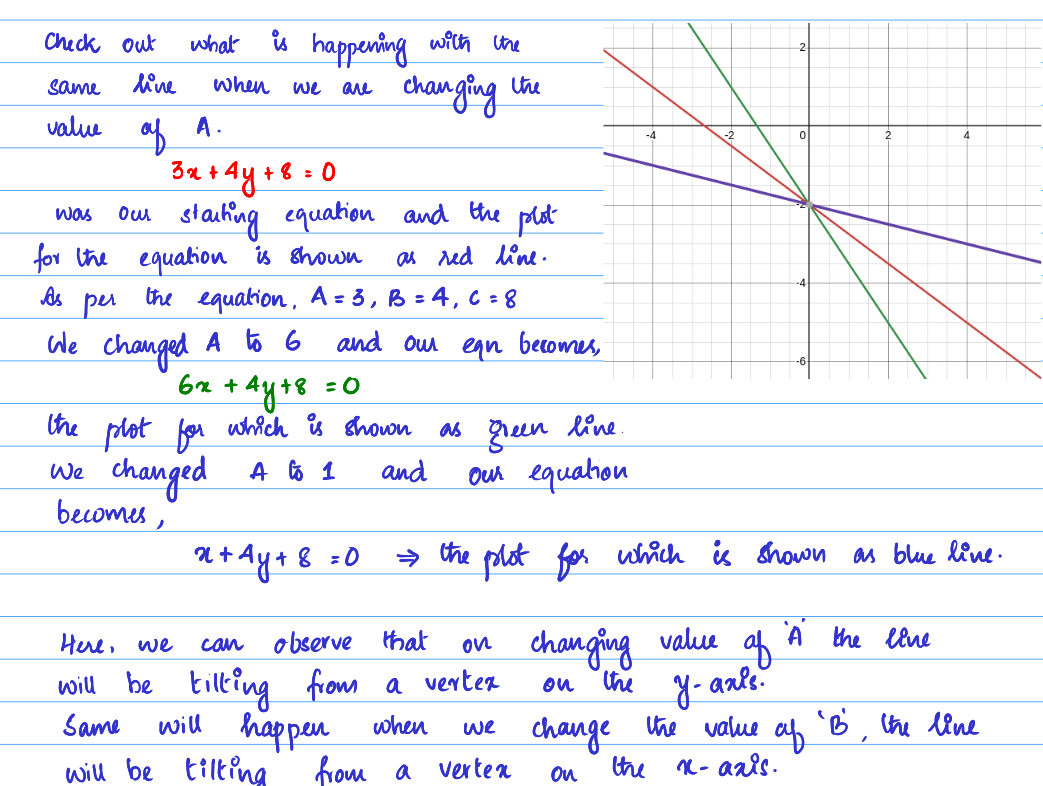 Check out what is happening with the
same line when we are changing the
value of A.
3x + 4y + 8 = 0
was our starting equation and the plot
for the equation is shown as red line.
As per the equation, A = 3, B = 4, C = 8
We changed A to 6 and our eqn becomes,
6x + 4y + 8 = 0
the plot for which is shown as green line.
We changed A to 1 and our equation
becomes,
x + 4y + 8 = 0 ⇒ the plot for which is shown as blue line.
Here, we can observe that on changing value of 'A' the line
will be tilting from a vertex on the y-axis.
Same will happen when we change the value of 'B', the line
will be tilting from a vertex on the x-axis.
2
-4 -2 0 2 4
-2
-4
-6